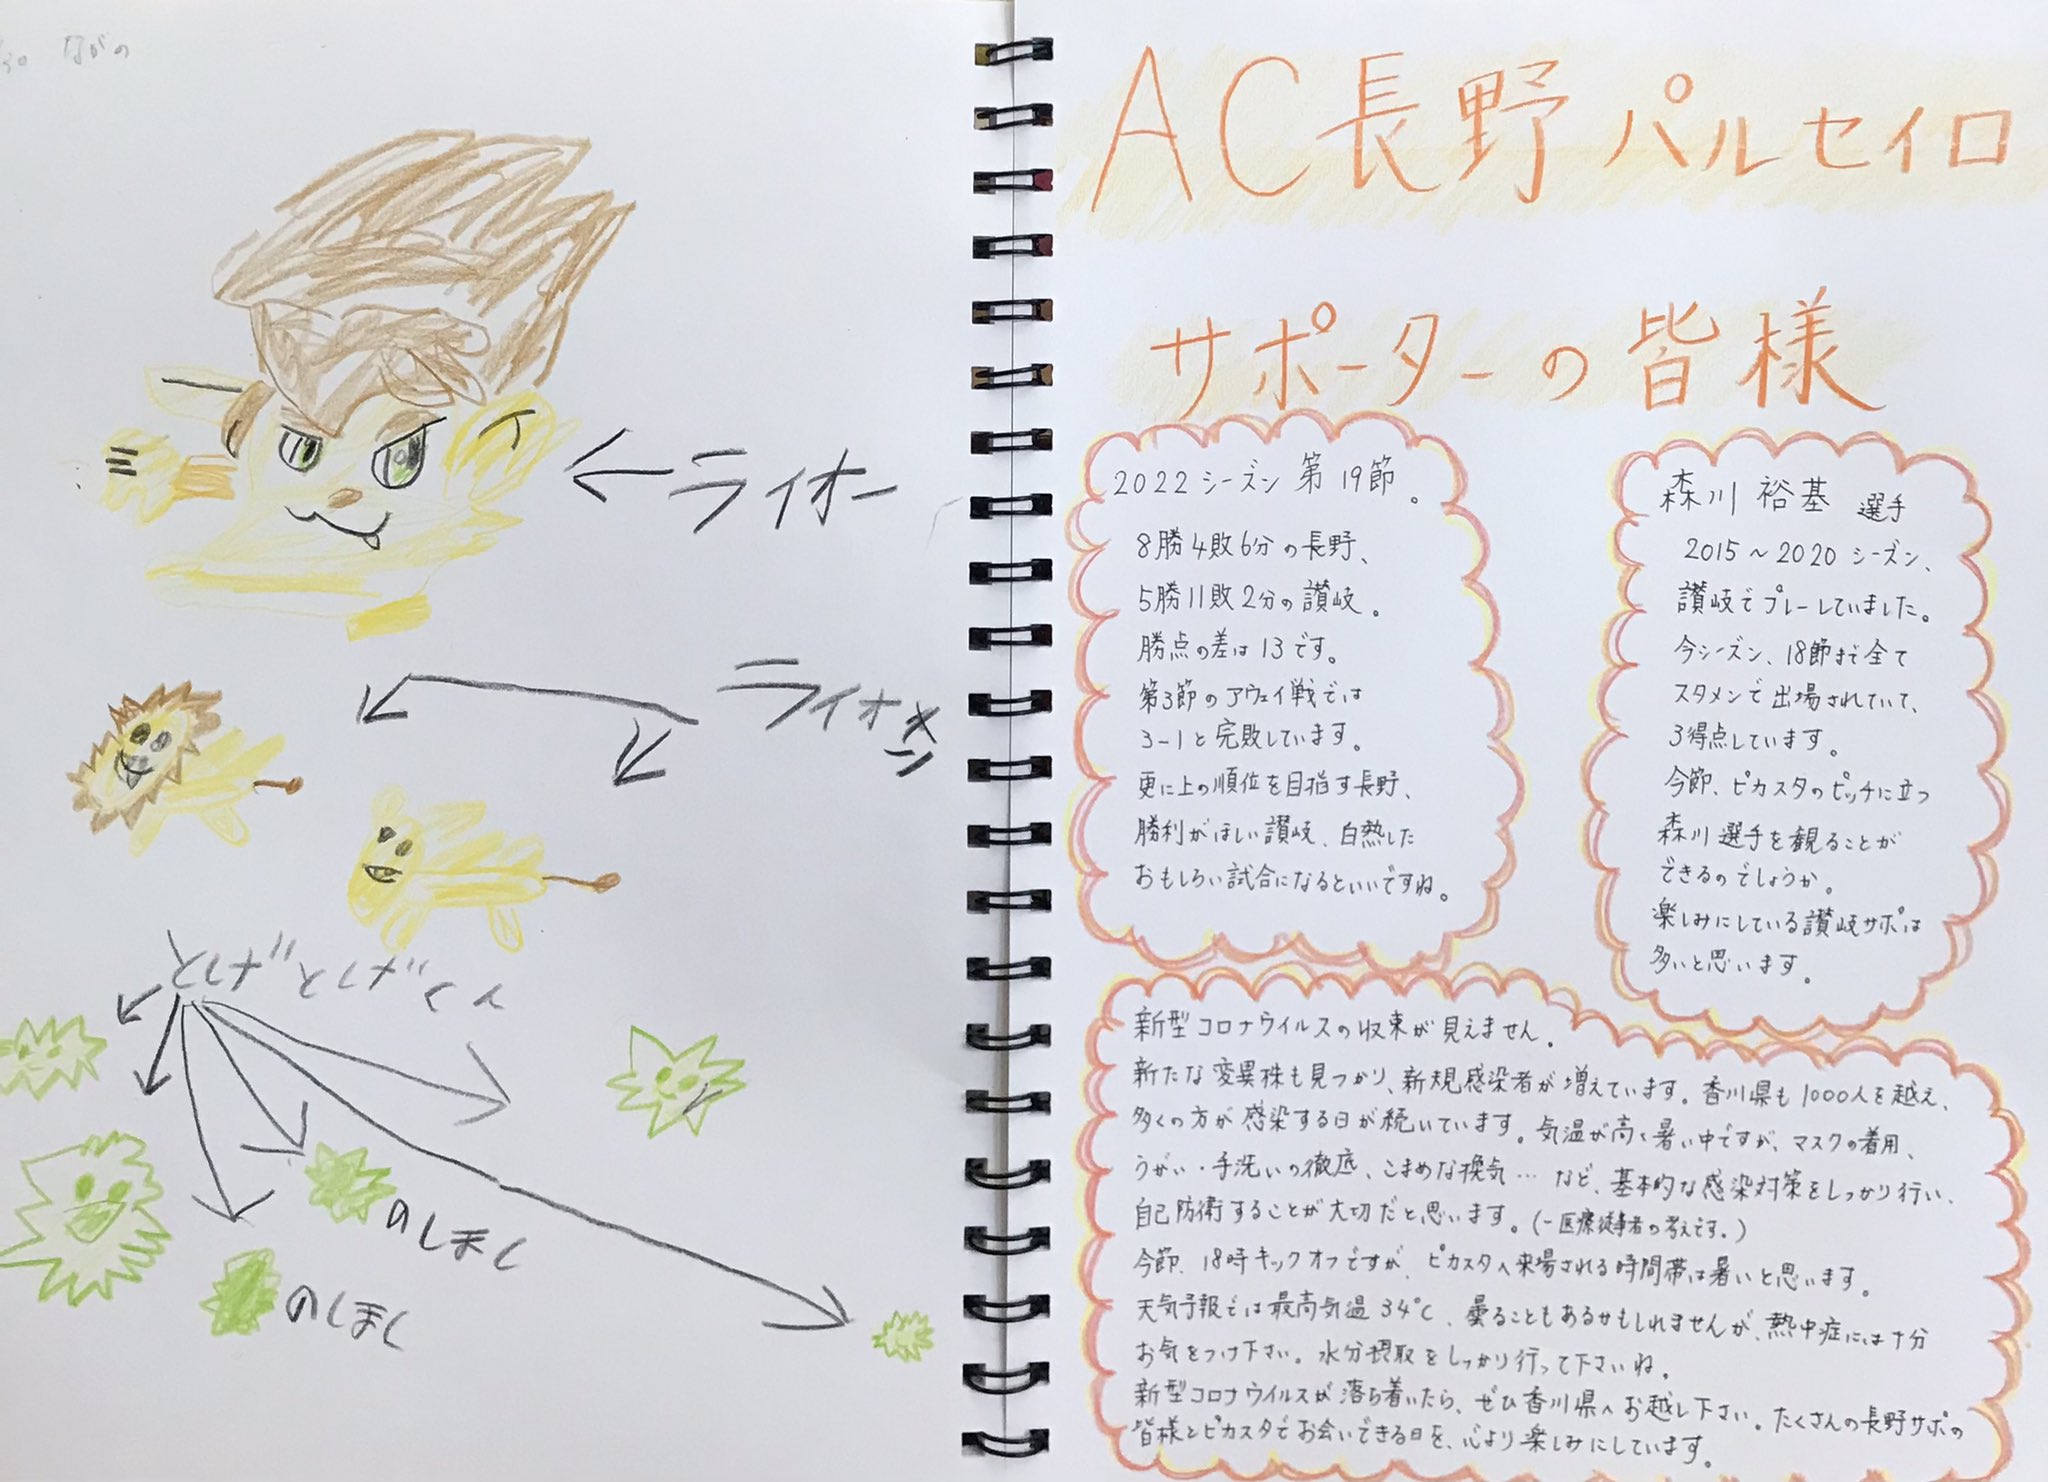 ながの
←ライオー
ライオン
のしまし
のしまし
AC長野パルセイロ
サポーターの皆様
2022シーズン 第19節。
8勝4敗6分の長野、
5勝11敗2分の讃岐。
勝点の差は13です。
第3節のアウェイ戦では
3-1と完敗しています。
更に上の順位を目指す長野、
勝利がほしい讃岐、白熱した
おもしろい試合になるといいですね。
森川 裕基 選手
2015~2020シーズン、
讃岐でプレーしていました。
今シーズン、18節まで全て
スタメンで出場されていて、
3得点しています。
今節、ピカスタのピッチに立つ
森川選手を観ることが
できるのでしょうか。
楽しみにしている讃岐サポは
多いと思います。
新型コロナウイルスの収束が見えません。
新たな変異株も見つかり、新規感染者が増えています。香川県も1000人を越え、
多くの方が感染する日が続いています。気温が高く暑い中ですが、マスクの着用、
うがい・手洗いの徹底、こまめな換気…など、基本的な感染対策をしっかり行い、
自己防衛することが大切だと思います。(一医療従事者の考えです。)
今節、18時キックオフですが、ピカスタへ来場される時間帯は暑いと思います。
天気予報では最高気温34℃、曇ることもあるかもしれませんが、熱中症には十分
お気をつけ下さい。水分摂取をしっかり行って下さいね。
新型コロナウイルスが落ち着いたら、ぜひ香川県へお越し下さい。たくさんの長野サポの
皆様とピカスタでお会いできる日を、心より楽しみにしています。